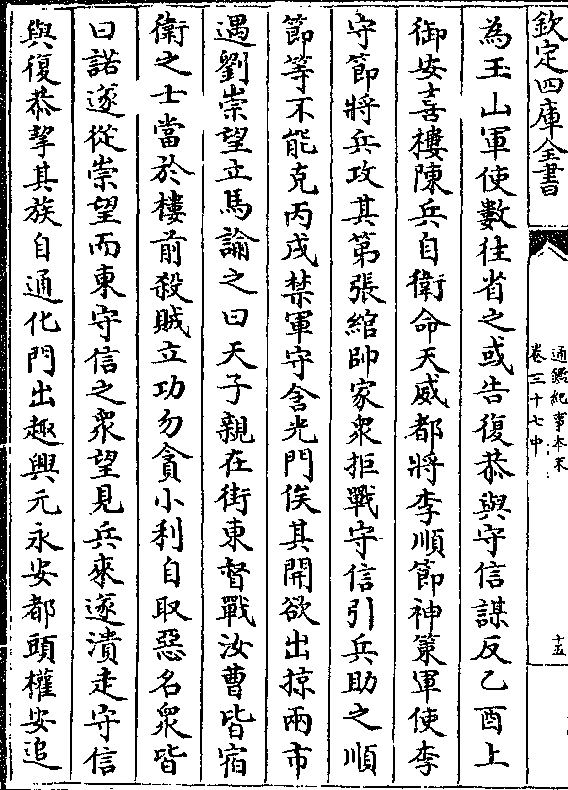 欽定四庫全書
通鑑紀事本末
卷三十七中
十五
為玉山軍使數往省之或告復恭與守信謀反乙酉上
御安喜樓陳兵自衛命天威都將李順節神策軍使李
守節將兵攻其第張綰帥家衆拒戰守信引兵助之順
節等不能克丙戌禁軍守含光門俟其開欲出掠兩市
遇劉崇望立馬諭之曰天子親在街東督戰汝曹皆宿
衛之士當於樓前殺賊立功勿貪小利自取惡名衆皆
曰諾遂從崇望而東守信之衆望見兵來遂潰走守信
與復恭挈其族自通化門出趣興元永安都頭權安追